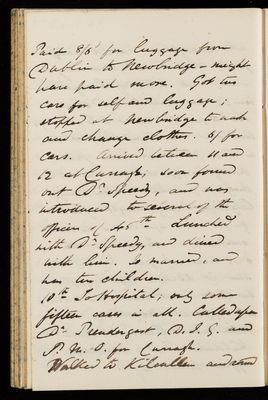 Paid 8/6 for luggage from
Dublin to Newbridge - might
have paid more. Got two
cars for self and luggage;
stopped at Newbridge to wash
and change clothes. 6/ for
cars. Arrived between 11 and
12 at Curragh; soon found
out Dr. Speedy, and was
introduced to several of the
officers of 45th. Lunched
with Dr. Speedy, and dined
with him. Is married, and
has two children.
10th To Hospital; only some
fifteen cases in all. Called upon
Dr. Prendergast, D. I. G. and
P. M. O. for Curragh.
Walked to Kilcullen and round